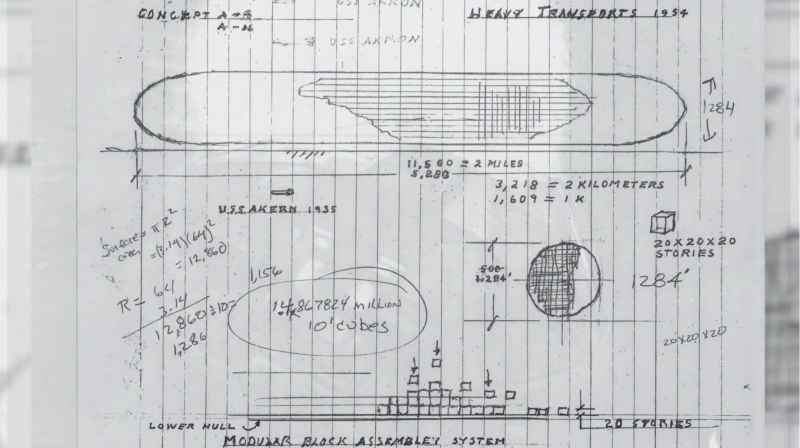 CONCEPT A→B
A→M
USS AKRON
← 8 USS AKRON
HEAVY TRANSPORTS 1954
1284
11,560 = 2 MILES
5,280
3,218 = 2 KILOMETERS
1,609 = 1 K
USS AKERN 1935
SURFACE = π R²
= (3.14)(64)²
= 12,860
R = 64
3.14
12,860 ÷ 10 =
1,286
1,156
14,867824 MILLION
10' CUBES
500
1284'
20X20X20
STORIES
1284'
20x20x20
LOWER HULL
20 STORIES
MODULAR BLOCK ASSEMBLEY SYSTEM